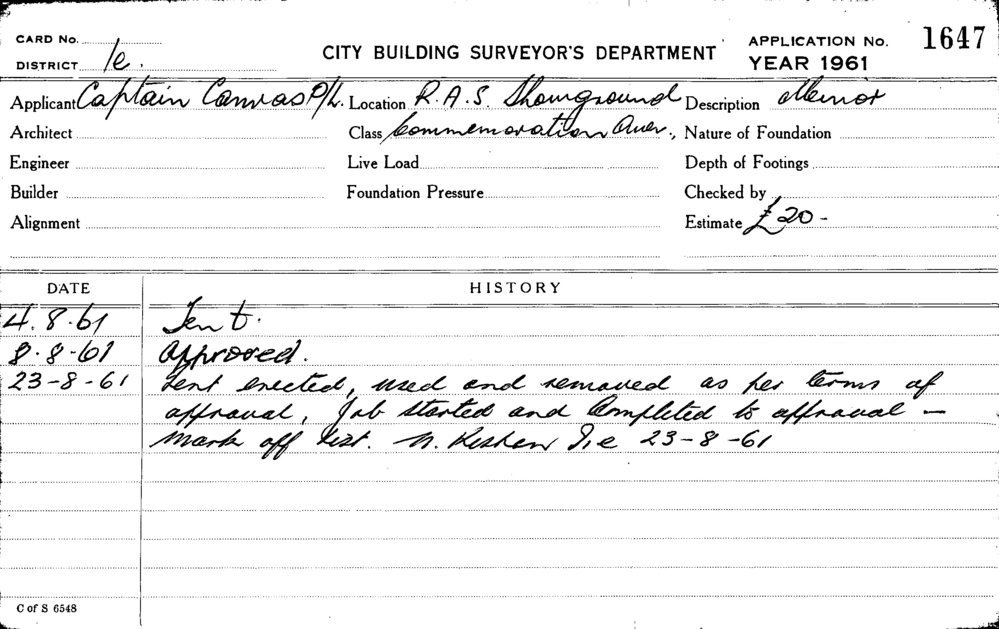 CARD No.
DISTRICT 1e.
CITY BUILDING SURVEYOR'S DEPARTMENT
APPLICATION No. 1647
YEAR 1961
Applicant Captain Canvas P/L. Location R.A.S. Showground Description Minor
Architect Class Commemoration Ave., Nature of Foundation
Engineer Live Load Depth of Footings
Builder Foundation Pressure Checked by
Alignment Estimate £20-
DATE HISTORY
4.8.61 Tent.
8.8.61 Approved.
23-8-61 Tent erected, used and removed as per terms of
approval, Job started and Completed to approval –
mark off list. N. 1e 23-8-61
C of S 6548